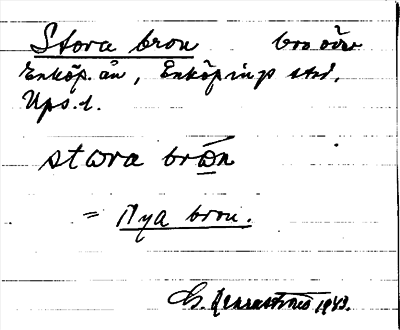 Stora bron bro över
Enköp. ån, Enköpings stad,
Ups. l.
stωra brωn
= Nya bron.
1943.